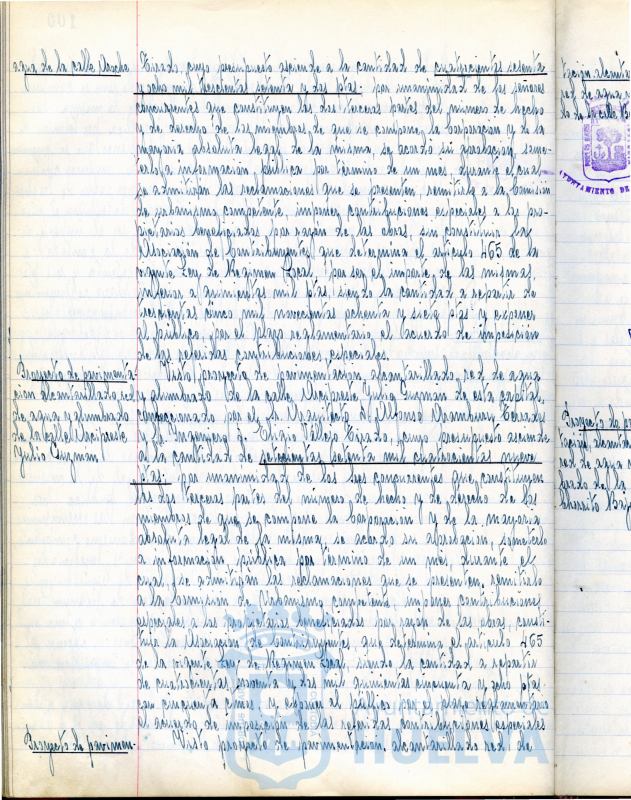 agua de la calle
Tirado, cuyo presupuesto asciende a la cantidad de cuatrocientas setenta
y ocho mil trescientas setenta y dos ptas. por unanimidad de los señores
concurrentes que constituyen las dos terceras partes del número de hecho
y de derecho de los miembros de que se compone la Corporación y de la
mayoría absoluta legal de la misma, se acordó su aprobación, some-
terlo a información pública por término de un mes, durante el cual
se admitirán las reclamaciones que se presenten, remitirlo a la Comisión
de Urbanismo competente, imponer contribuciones especiales a los pro-
pietarios beneficiados por razón de las obras, sin constituir la
Asociación de Contribuyentes que determina el artículo 465 de la
vigente Ley de Régimen Local, por ser el importe de las mismas,
inferior a quinientas mil ptas, siendo la cantidad a repartir de
trescientas cinco mil novecientas ochenta y siete ptas y exponer
al público, por el plazo reglamentario, el acuerdo de imposición
de las referidas contribuciones especiales.
Proyecto de pavimenta-
ción alcantarillado red
de agua y alumbrado
de la calle Arcipreste
Julio Guzman
Visto proyecto de pavimentación, alcantarillado, red de agua
y alumbrado de la calle Arcipreste Julio Guzman de esta capital,
confeccionado por el Sr. Arquitecto D. Alfonso Aramburu Terrades
y el Ingeniero D. Eligio Vallejo Tejada, cuyo presupuesto asciende
a la cantidad de setecientas setenta mil cuatrocientas nueve
ptas. por unanimidad de los Sres concurrentes que constituyen
las dos terceras partes del número de hecho y de derecho de los
miembros de que se compone la Corporación y de la mayoría
absoluta legal de la misma, se acordó su aprobación, someterlo
a información pública por término de un mes, durante el
cual, se admitirán las reclamaciones que se presenten, remitirlo
a la Comisión de Urbanismo competente, imponer contribuciones
especiales a los propietarios beneficiados por razón de las obras, consti-
tuir la Asociación de Contribuyentes, que determina el artículo 465
de la vigente Ley de Régimen Local, siendo la cantidad a repartir
de cuatrocientas noventa y dos mil quinientas cincuenta y ocho ptas.
con cincuenta cmos y exponer al público por el plazo reglamentario
el acuerdo de imposición de las referidas contribuciones especiales
Proyecto de pavimen-
Visto proyecto de pavimentación, alcantarillado red de
AYUNTAMIENTO DE
HUELVA